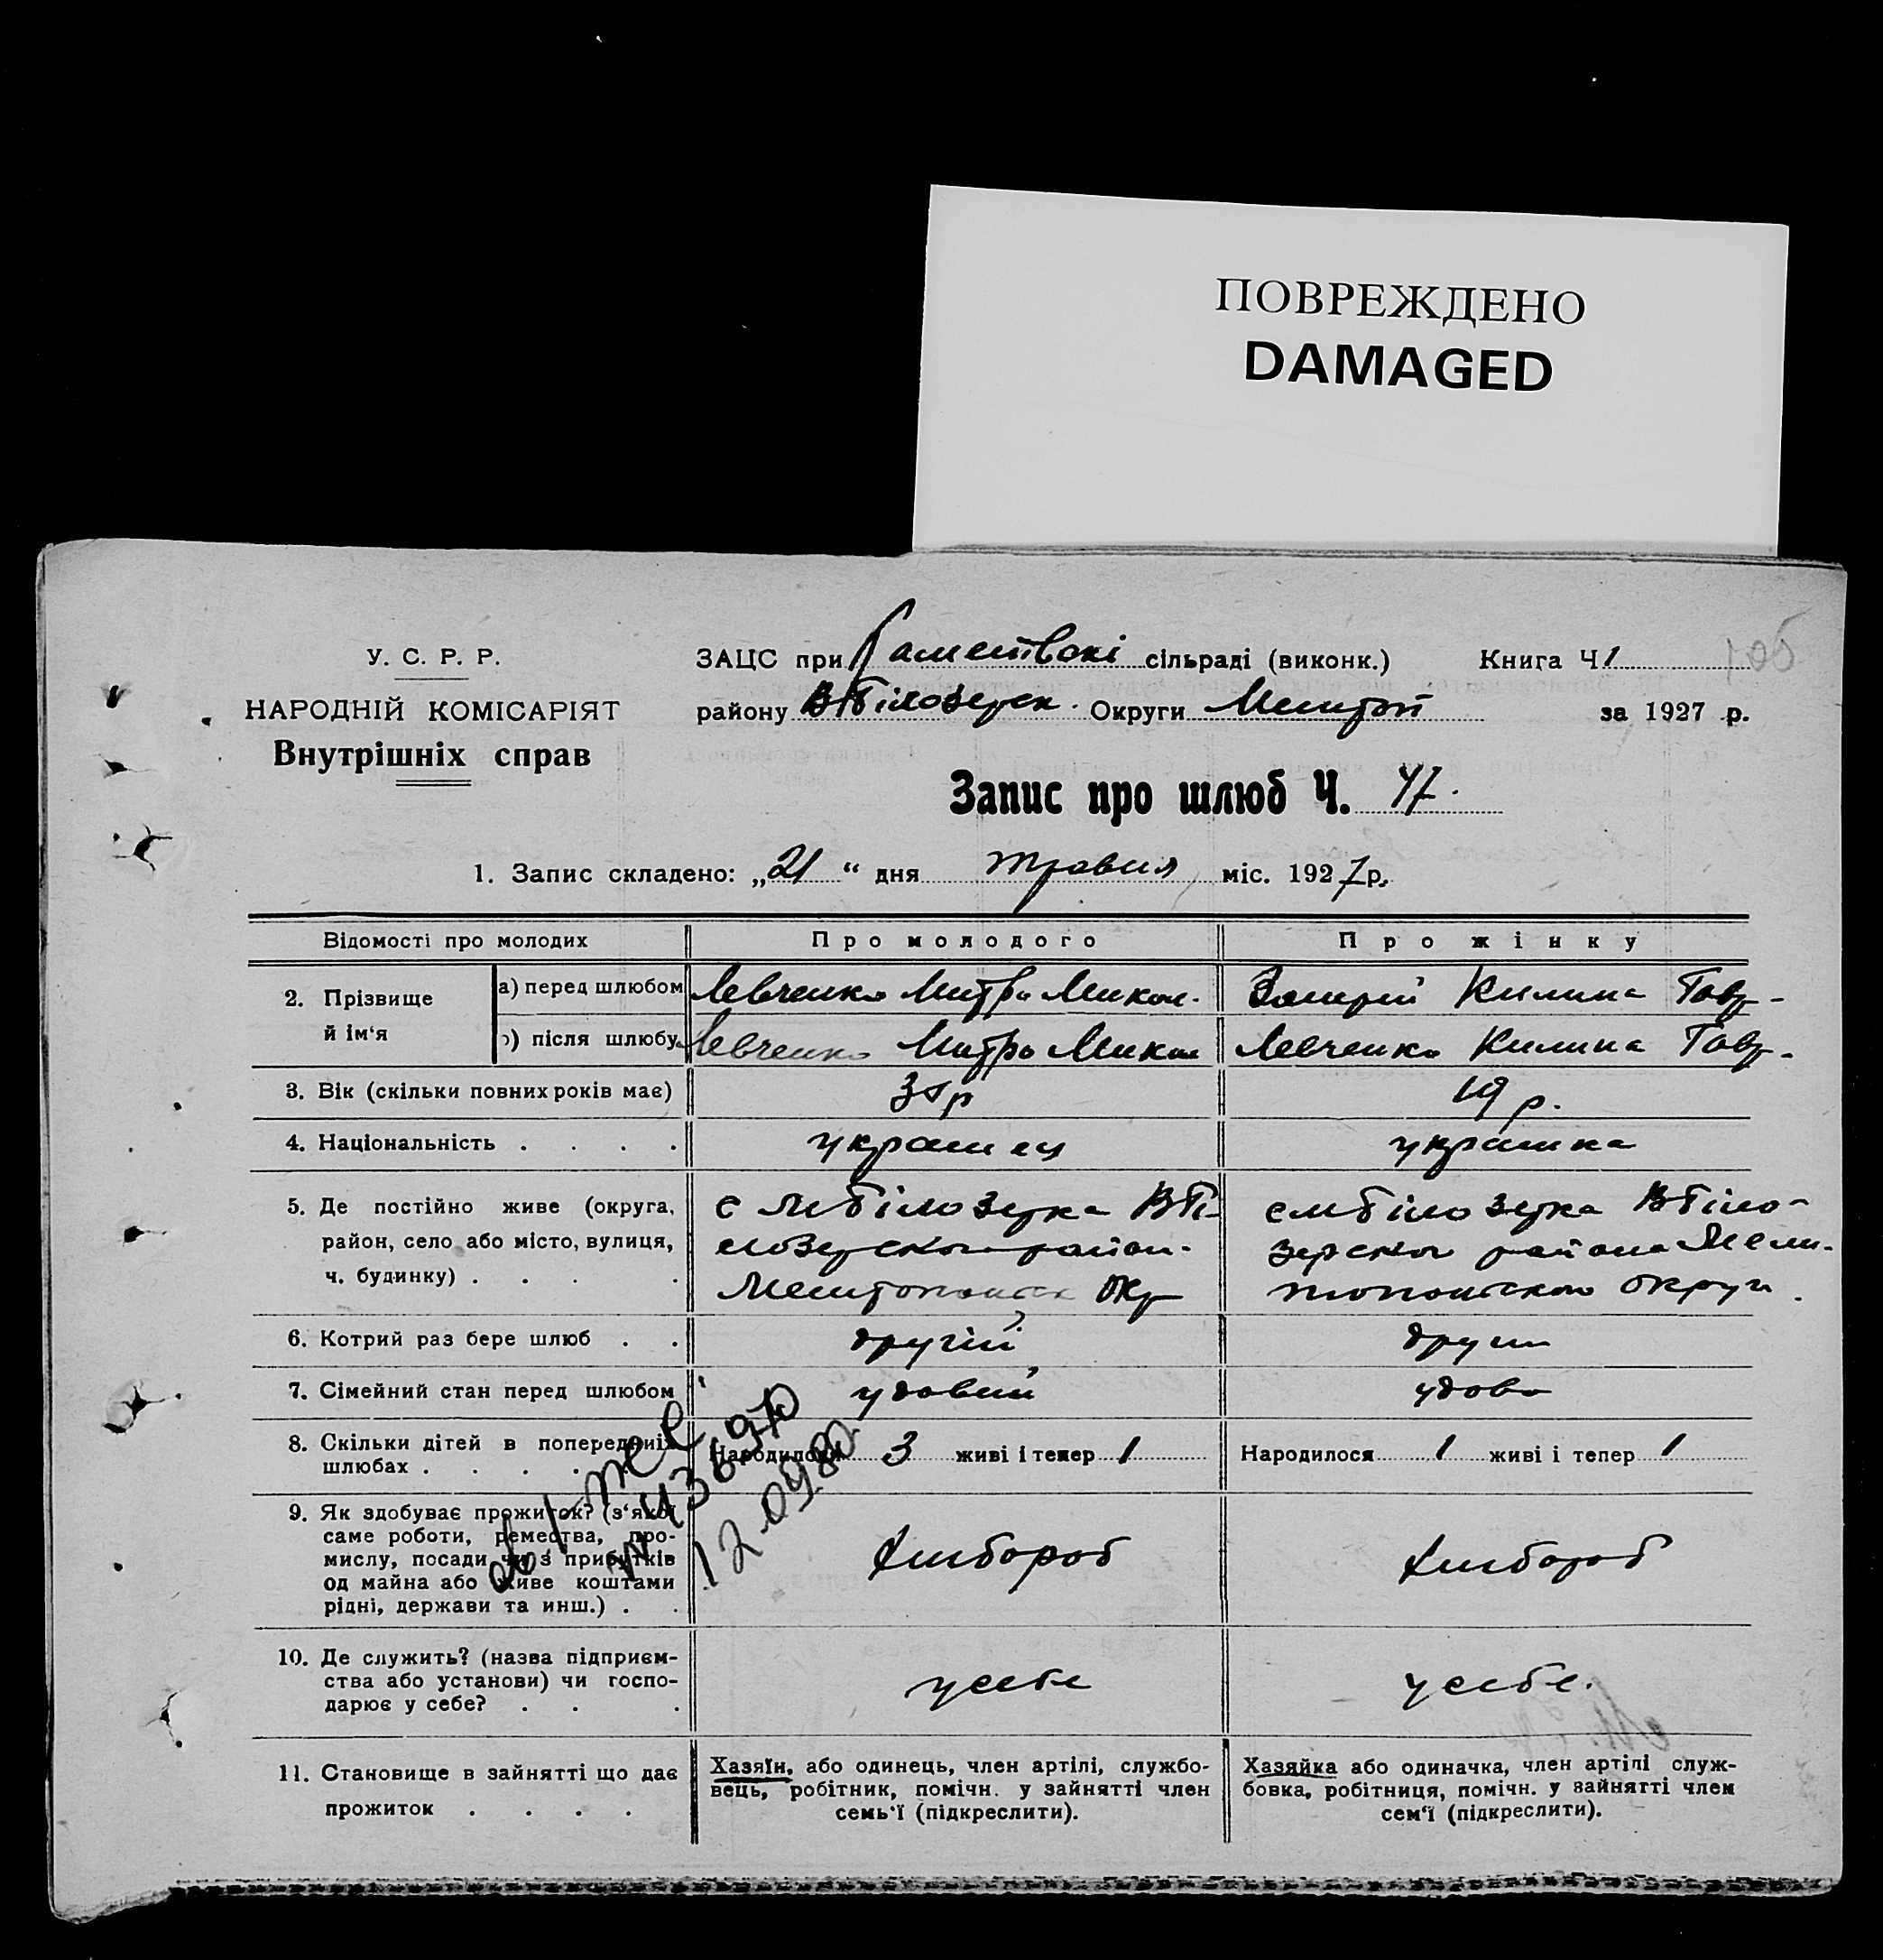 ПОВРЕЖДЕНО
DAMAGED
У. С. Р. Р.
НАРОДНІЙ КОМІСАРІЯТ
Внутрішніх справ
ЗАЦС при сільраді (виконк.) Книга Ч 1
району Округи за 1927 р.
Запис про шлюб Ч. 47.
1. Запис складено: „21“ дня травня міс. 1927 р.
Відомості про молодих Про молодого Про жінку
2. Прізвище й ім‘я
а) перед шлюбом Левченко Митро Микол. Килина Гавр.
б) після шлюбу Левченко Митро Микол Левченко Килина Гавр.
3. Вік (скільки повних років має) 19 р.
4. Національність . . . . украинец украинка
5. Де постійно живе (округа, район, село або місто, вулиця, ч. будинку) . . . .
с МБілозурка ВБі-
лозерског район.
Мелитопольск Окр
с МБілозурка ВБіло-
зерског района Мели-
топольского округи.
6. Котрий раз бере шлюб . . другій други
7. Сімейний стан перед шлюбом удовий удова
8. Скільки дітей в попередніх шлюбах . . . . . Народилося 3 живі і тепер 1 Народилося 1 живі і тепер 1
9. Як здобуває прожиток? (з‘якої саме роботи, ремества, промислу, посади чи з прибутків од майна або живе коштами рідні, держави та инш.) . . хлибороб хлибороб
10. Де служить? (назва підприємства або установи) чи господарює у себе? . . . у себе у себе.
11. Становище в зайнятті що дає прожиток . . . .
Хазяїн, або одинець, член артілі, службо-
вець, робітник, помічн. у зайнятті член
семь‘ї (підкреслити).
Хазяйка або одиначка, член артілі служ-
бовка, робітниця, помічн. у зайнятті член
сем‘ї (підкреслити).